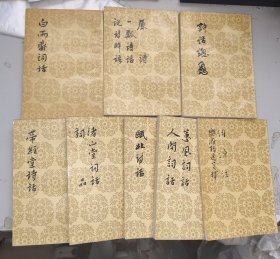 白雨齋詞話
原詩
一瓢詩話
說詩晬語
對話總龜
帶經堂詩話
渚山堂詞話
詞品
甌北詩話
蕙風詞話
人間詞話